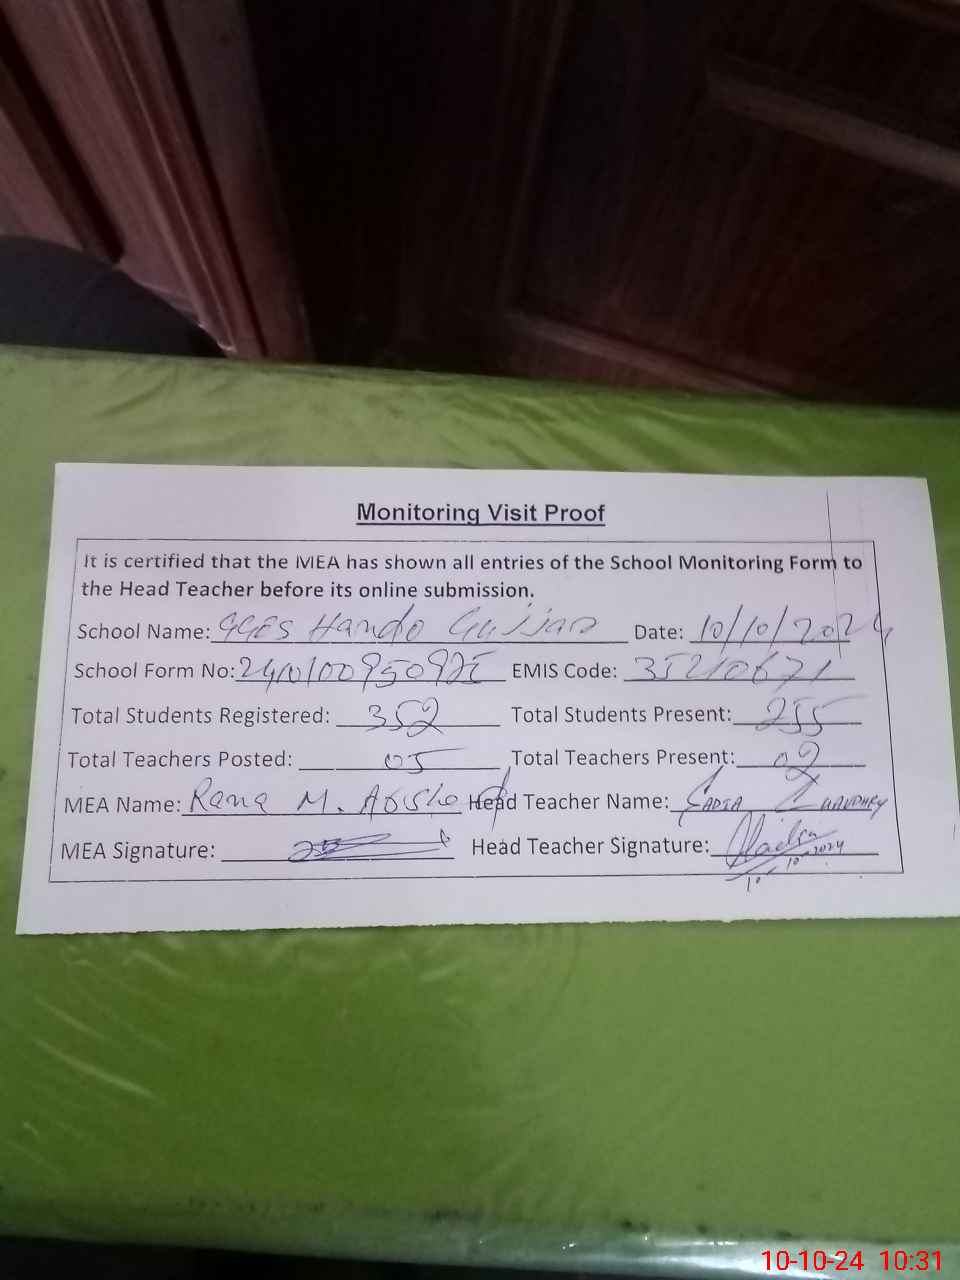 Monitoring Visit Proof
It is certified that the MEA has shown all entries of the School Monitoring Form to
the Head Teacher before its online submission.
School Name: GGES Hando Gujjar Date: 10/10/2024
School Form No: EMIS Code: 35210671
Total Students Registered: 352 Total Students Present: 255
Total Teachers Posted: 05 Total Teachers Present: 02
MEA Name: Rana M. Head Teacher Name: SADIA CHAUDHRY
MEA Signature: Head Teacher Signature: Sadia
10 10 2024
10-10-24 10:31